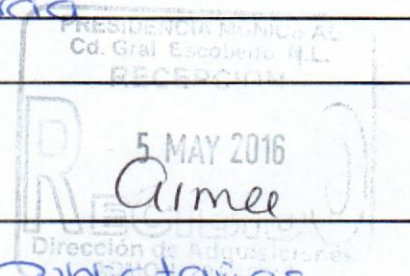 PRESIDENCIA MUNICIPAL
Cd. Gral Escobedo N.L.
RECEPCION
5 MAY 2016
aimee
RECIBIDO
Dirección de Adquisiciones